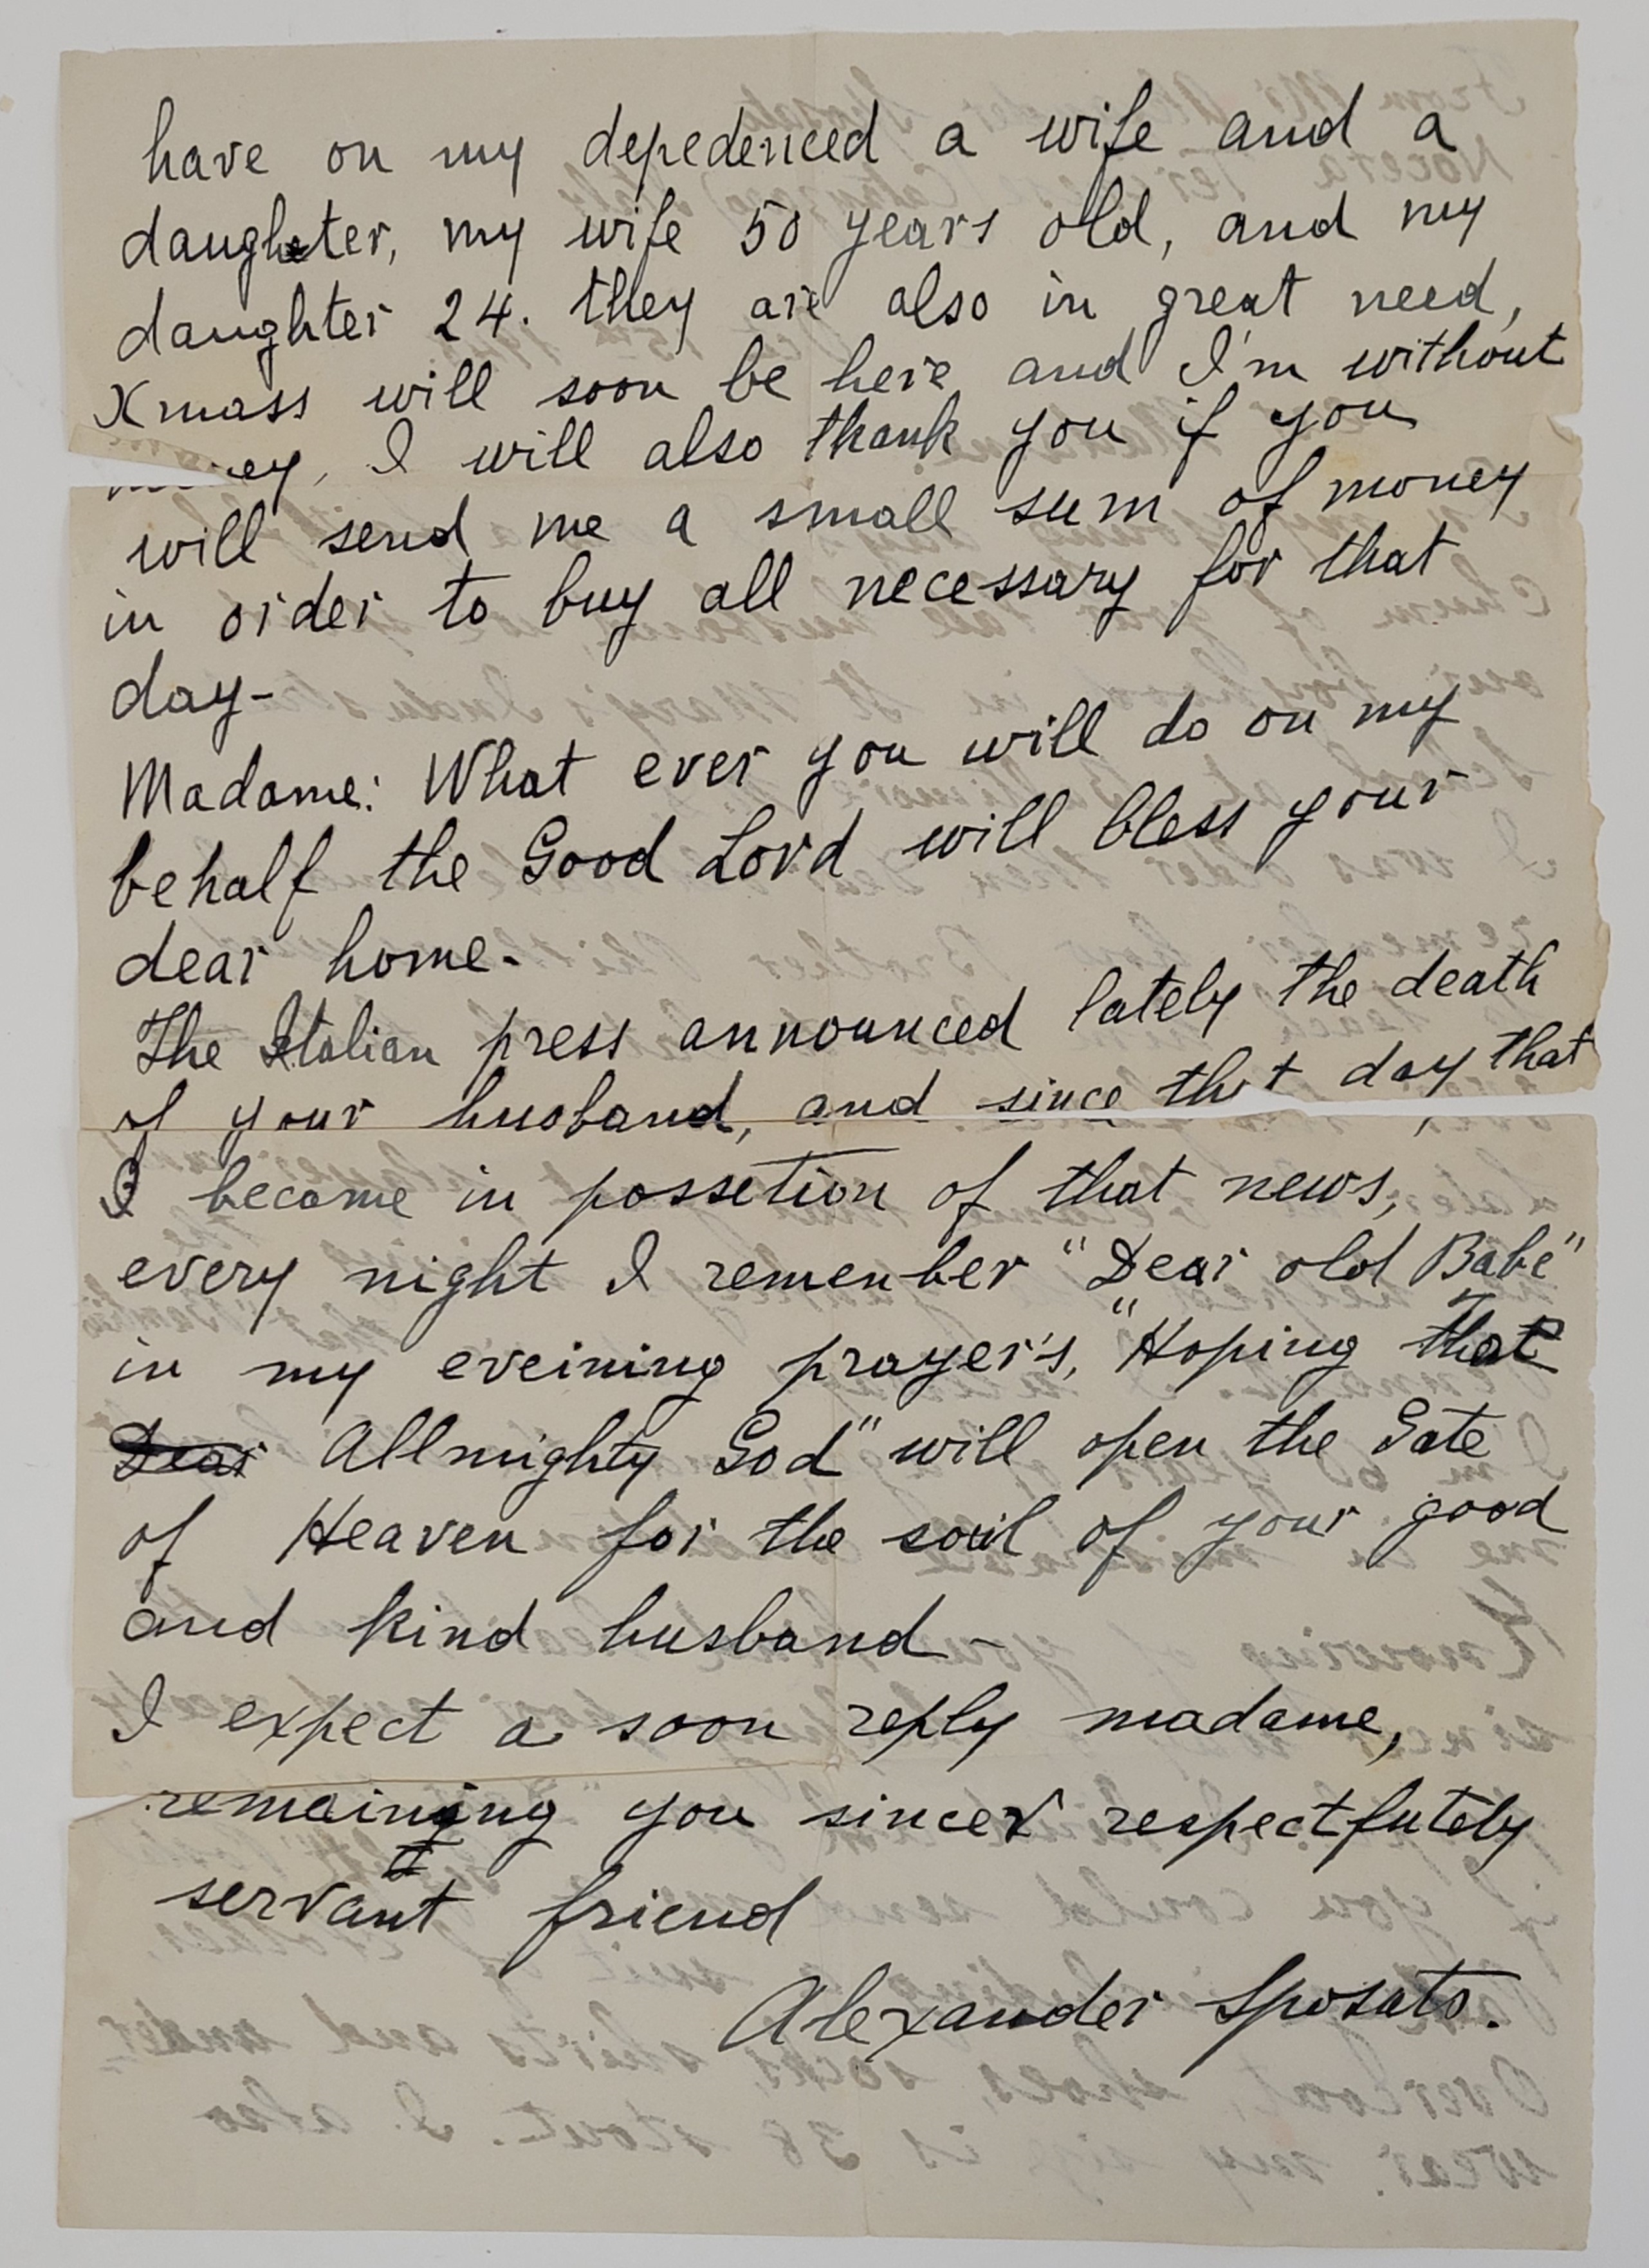 have on my depedenced a wife and a
daughter, my wife 50 years old, and my
daughter 24. they are also in great need,
Xmass will soon be here and I'm without
money, I will also thank you if you
will send me a small sum of money
in order to buy all necessary for that
day-
Madame: What ever you will do on my
behalf the Good Lord will bless your
dear home.
The Italian press announced lately the death
of your husband, and since that day that
I become in possetion of that news,
every night I remenber "Dear old Babe"
in my eveining prayer's, "Hoping that
Dear Allmighty God" will open the Gate
of Heaven for the soul of your good
and kind husband-
I expect a soon reply madame,
remaining you sincer respectfutely
servant friend
Alexander Sposato.